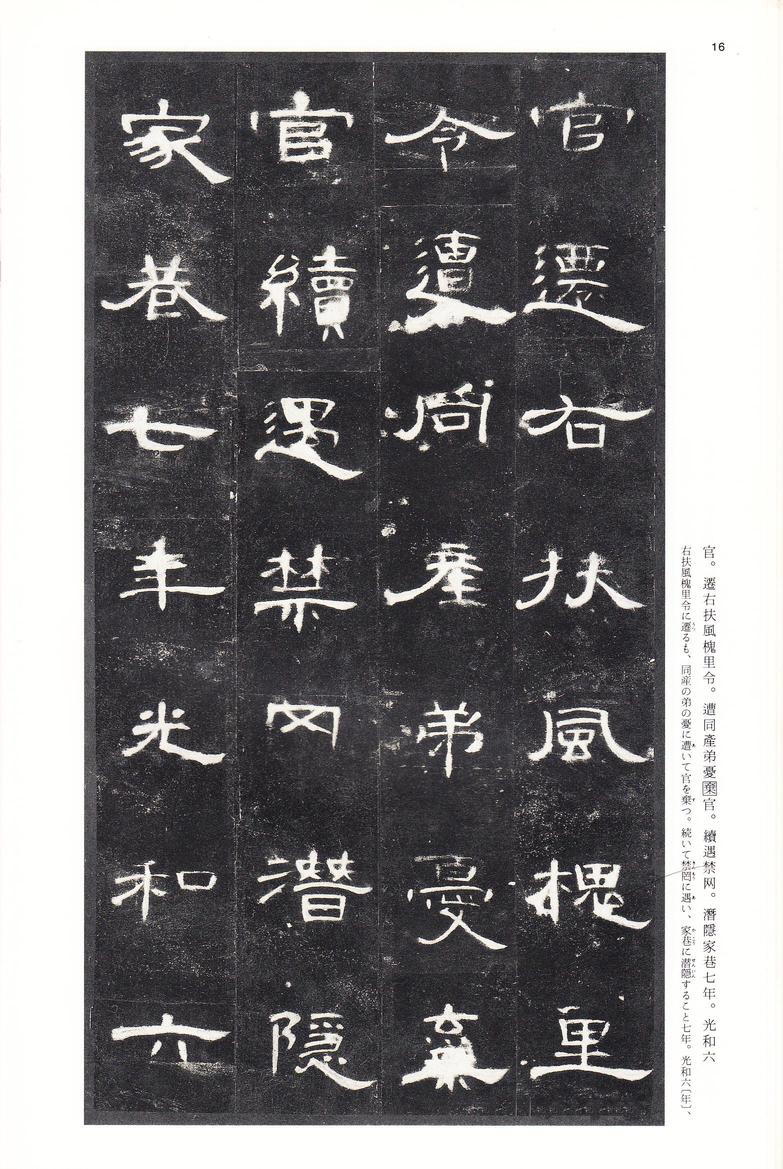 16
官遷右扶風槐里
令遭同產弟憂棄
官續遇禁网潛隱
家巷七年光和六
官。遷右扶風槐里令。遭同產弟憂棄官。續遇禁网。潛隱家巷七年。光和六
右扶風槐里令に遷るも、同産の弟の憂に遭いて官を棄つ。続いて禁罔に遇い、家巷に潜隠すること七年。光和六〔年〕、